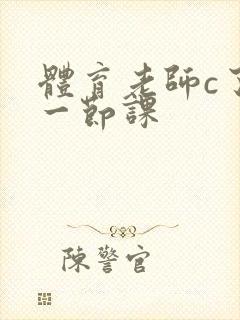 體育老師c了
一節課
陳警官